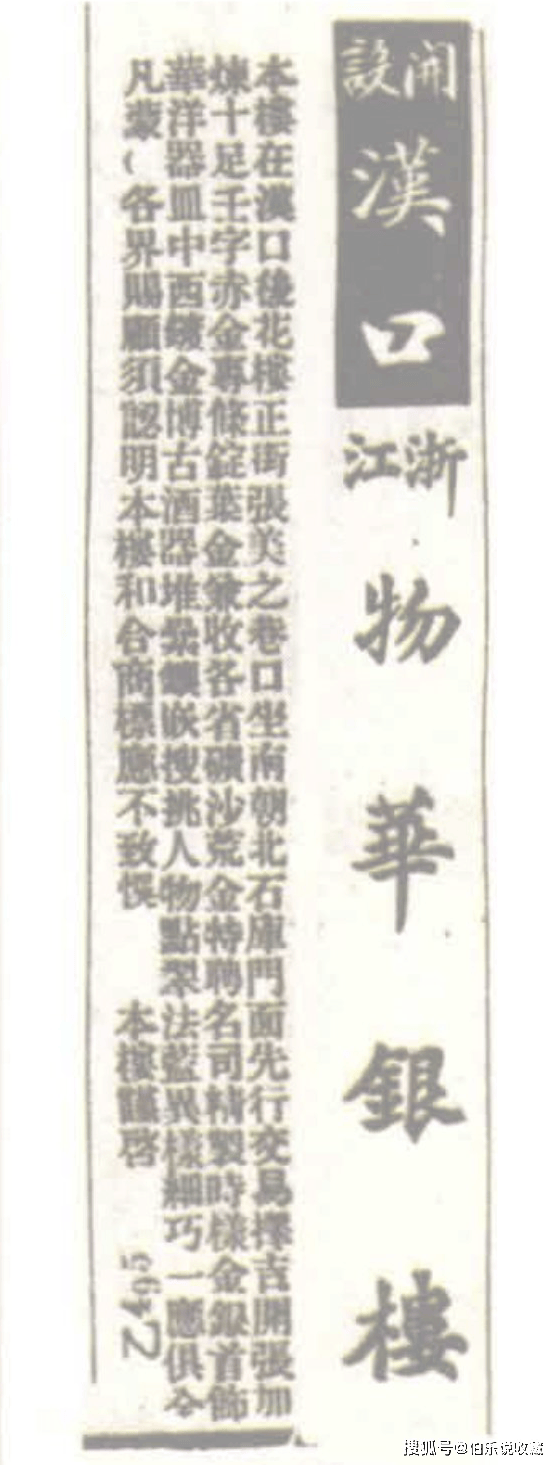 開設
漢口
浙江
物華銀樓
本樓在漢口後花樓正街張美之巷口坐南朝北石庫門面先行交易擇吉開張加
煉十足壬字赤金專條錠葉金兼收各省礦沙荒金特聘名司精製時樣金銀首飾
華洋器皿中西鑲金博古酒器堆纍鑲嵌搜挑人物點翠法藍異樣細巧一應俱全
凡蒙(各界賜顧須認明本樓和合商標應不致悞
本樓謹啓
搜狐号@伯乐说收藏